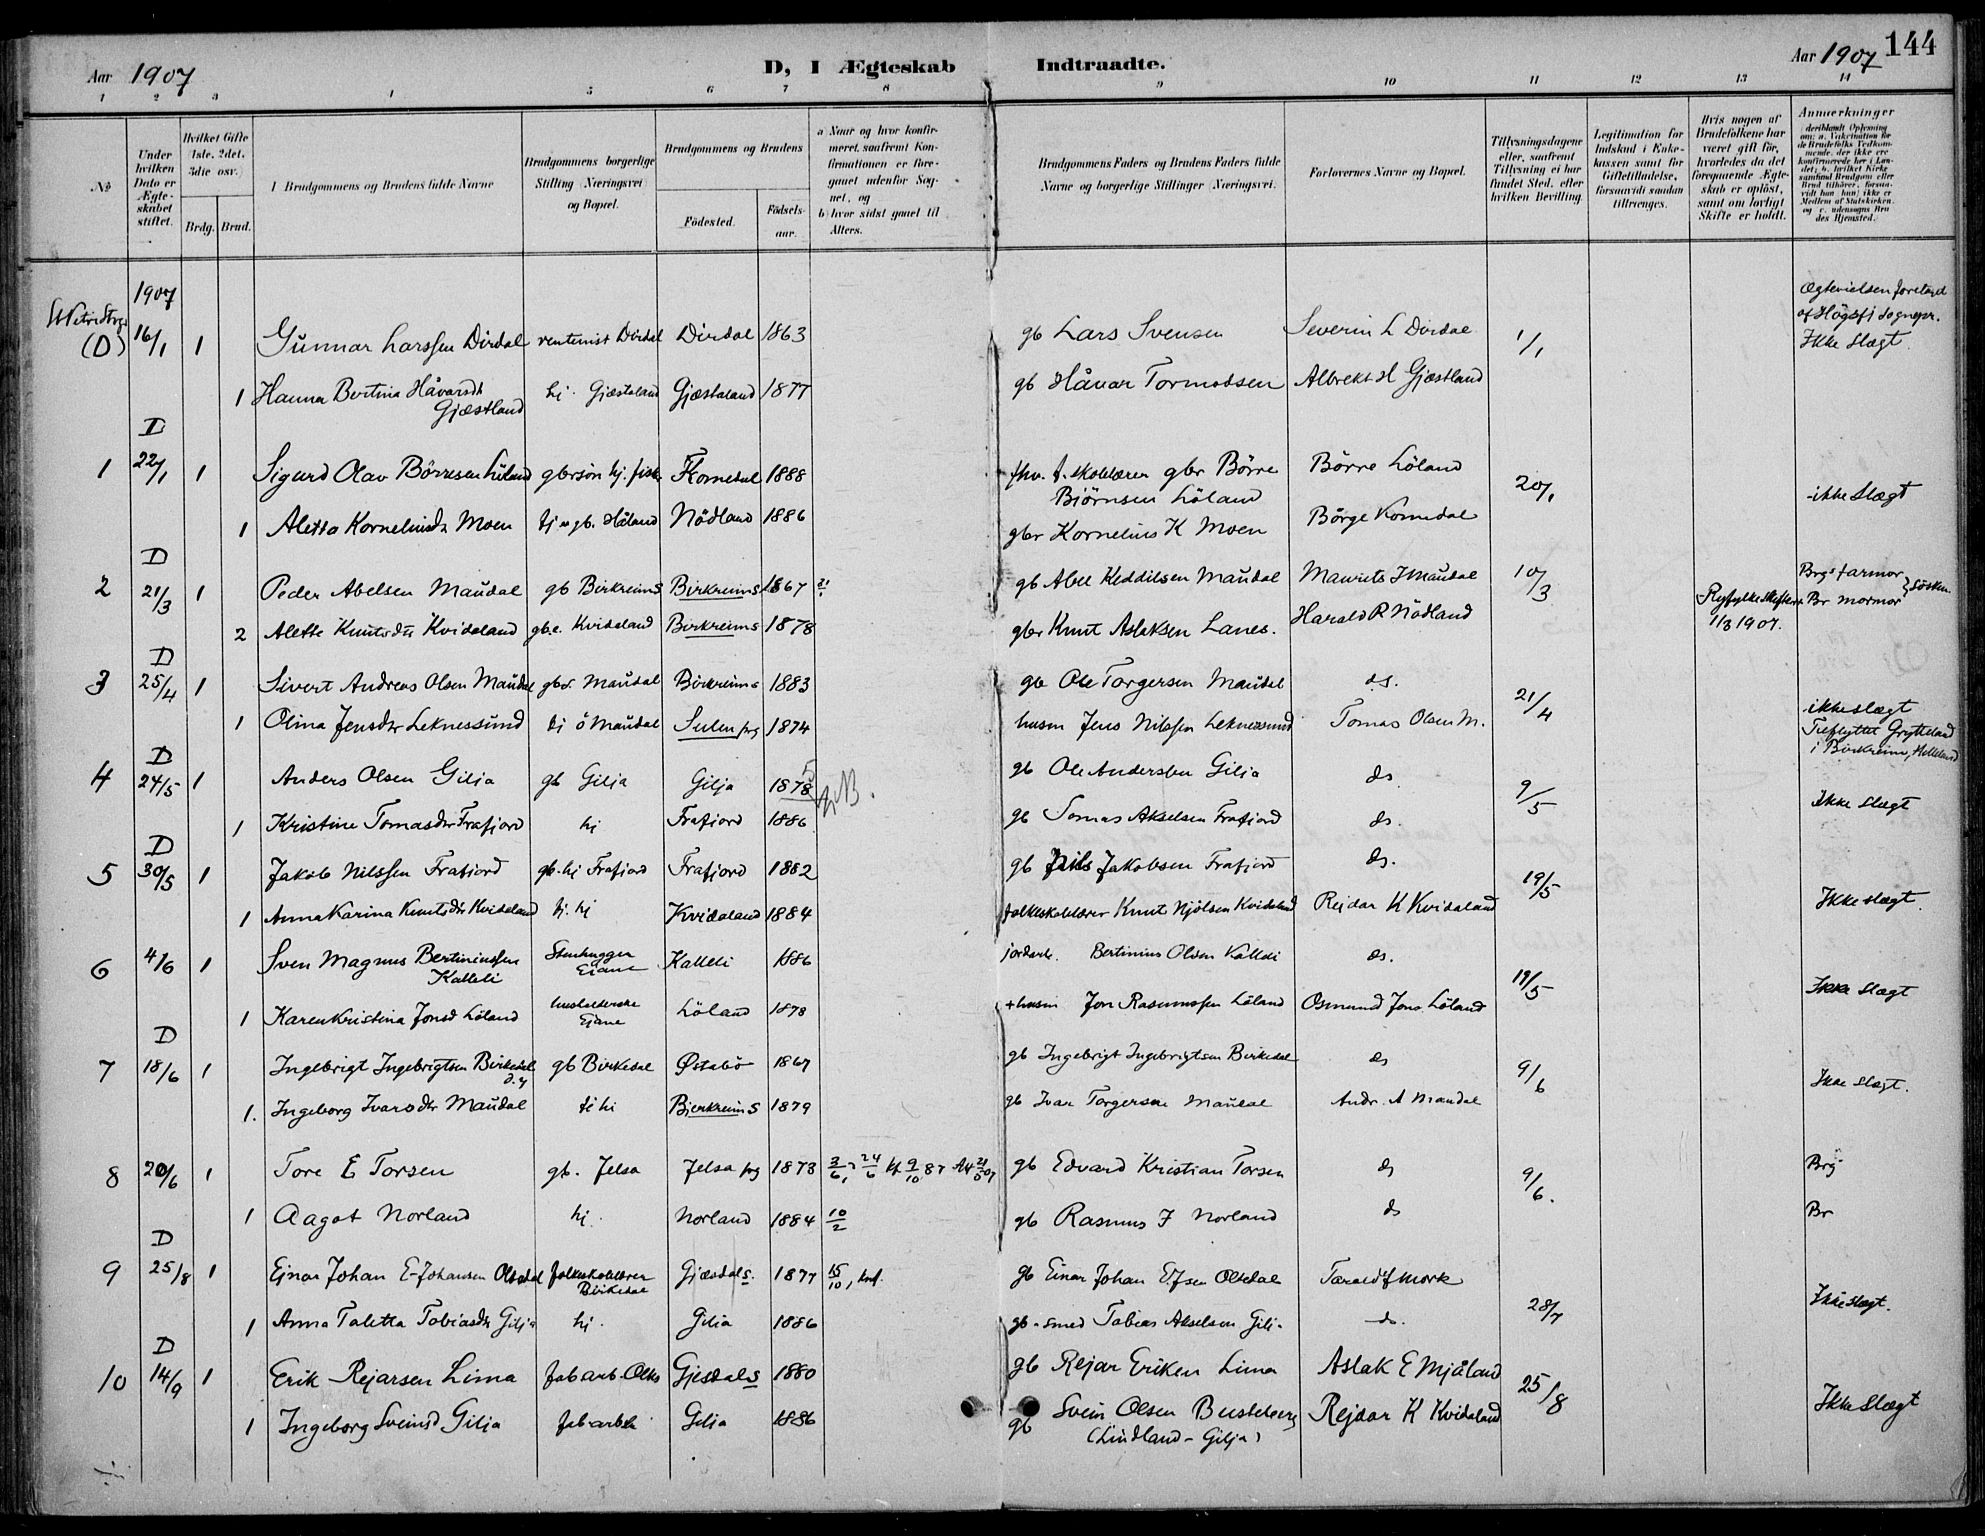 Aar 1907
D, I Ægteskab Indtraadte.
Aar 1907 144
1 2 3 4 5 6 7 8 9 10 11 12 13 14
No
Under hvilken Dato er Ægteskabet stiftet.
Hvilket Gifte (1ste, 2det, 3die osv.)
Brdg. Brud.
Brudgommens og Brudens fulde Navne
Brudgommens borgerlige Stilling (Næringsvei) og Bopæl.
Brudgommens og Brudens
Fødested. Fødselsaar.
a) Naar og hvor konfirmeret, saafremt Konfirmationen er foregaaet udenfor Sognet, og
b) hvor sidst gaaet til Alters.
Brudgommens Faders og Brudens Faders fulde Navne og borgerlige Stillinger (Næringsvei).
Forlovernes Navne og Bopæl.
Tillysningsdagene eller, saafremt Tillysning ei har fundet Sted, efter hvilken Bevilling.
Legitimation for Indskud i Enkekassen samt for Giftetilladelse, forsaavidt saadan tiltrænges.
Hvis nogen af Brudefolkene har været gift før, hvorledes da det foregaaende Ægteskab er opløst, samt om lovligt Skifte er holdt.
Anmærkninger
1907
(D) 16/1 1 Gunnar Larssen Dirdal rentenist Dirdal Dirdal 1863 gb Lars Svensen Severin L Dirdal 1/1 Ægtevielsen foretaget af Högsfj sognepr. Ikke slægt.
1 Hanna Bertina Håvarsdt Gjæstland hj. Gjæstaland Gjæstaland 1877 gb Håvar Tormodsen Albrekt H Gjæstland
D
1 22/1 1 Sigurd Olav Börresen Löland gbrsön hj. fisk. Komedal 1888 fhv. f. skolelærer gbr Börre Björnsen Löland Börre Löland 20/1 -ikke slægt
1 Aletta Kornelinsdtr Moen tj gb. Håland Nödland 1886 gbr Kornelius K Moen Börge Komedal
D
2 21/3 1 Peder Abelsen Maudal gb Birkreims Birkreims 1867 gb Abel Keddilsen Maudal Maurits J Maudal 10/3 Ryfylke skifteret 1/3 1907. Brgs farmor Br mormor } sösken
2 Alette Knutsdtr Kvidaland gbe. Kvidaland Birkreims 1878 gbr Knut Aslaksen Lanes. Harald R Nödland
D
3 25/4 1 Sivert Andreas Olsen Maudal gbs. Maudal Birkreims 1883 gb Ole Torgersen Maudal ds. 21/4 ikke slægt
1 Olina Jensdtr Leknessund tj å Maudal Sulen prg 1874 husm Jens Nilssen Leknessund Tomas Olsen M. Tilflyttet Grytteland i Birkreim, Helleland
D
4 24/5 1 Anders Olsen Gilja gb Gilja Gilja 1878 5 NB. gb Ole Andersen Gilja ds 9/5 ikke slægt
1 Kristine Tomasdtr Frafjord hj Frafjord 1886 gb Tomas Akselsen Frafjord ds.
D
5 30/5 1 Jakob Nilssen Frafjord gb. hj Frafjord Frafjord 1882 gb Nils Jakobsen Frafjord ds. 19/5 Ikke slægt.
1 Anna Karina Knutsdtr Kvidaland hj. hj Kvidaland 1884 folkeskolelærer Knut Njölsen Kvidaland Rejdar K Kvidaland
6 4/6 1 Sven Magnus Bertiniussen Kalleli Stenhugger Eiane Kalleli 1886 jordarb. Bertinius Olsen Kalleli ds. 19/5 Ikke slægt
1 Karen Kristina Jonsd Löland husholderske Eiane Löland 1878 + husm Jon Rasmussen Löland Osmund Jons. Löland
D
7 18/6 1 Ingebrigt Ingebrigtsen Birkedal d.y gb Birkedal Østabö 1867 gb Ingebrigt Ingebrigtsen Birkedal ds 9/6 Ikke slægt.
1. Ingeborg Ivarsdtr Maudal hj Bjerkreims 1879 gb Ivar Torgersen Maudal Andr. A Maudal
8 20/6 1 Tore E Torsen gb. Jelsa Jelsa prg 1873 3/6, 24/6 kf 9/10 87 gb Edvard Kristian Torsen ds 9/6. Brg
1 Aagot Norland hj. Norland 1884 10/2 gb Rasmus J Norland ds Br
D
9 25/8 1 Ejnar Johan E-Johansen Oltedal folkeskolelærer Birkedal Gjæsdals. 1877 15/10, gb Einar Johan E.Jsen Oltedal Tarald J Mork 28/7 Ikke slægt.
1 Anna Taletta Tobiasdtr Gilja hj. Gilja 1886 gb. smed Tobias Akselsen Gilja ds.
D
10 14/9 1 Erik Rejarsen Lima fab arb. Gjesdals 1880 gb Rejar Eriksen Lima Aslak E Mjåland 25/8 Ikke slægt
1 Ingeborg Sveinsd Gilja fab arb Gilja 1886 gb Svein Olsen Busteberg (Lindland - Gilja) Rejdar K Kvidaland